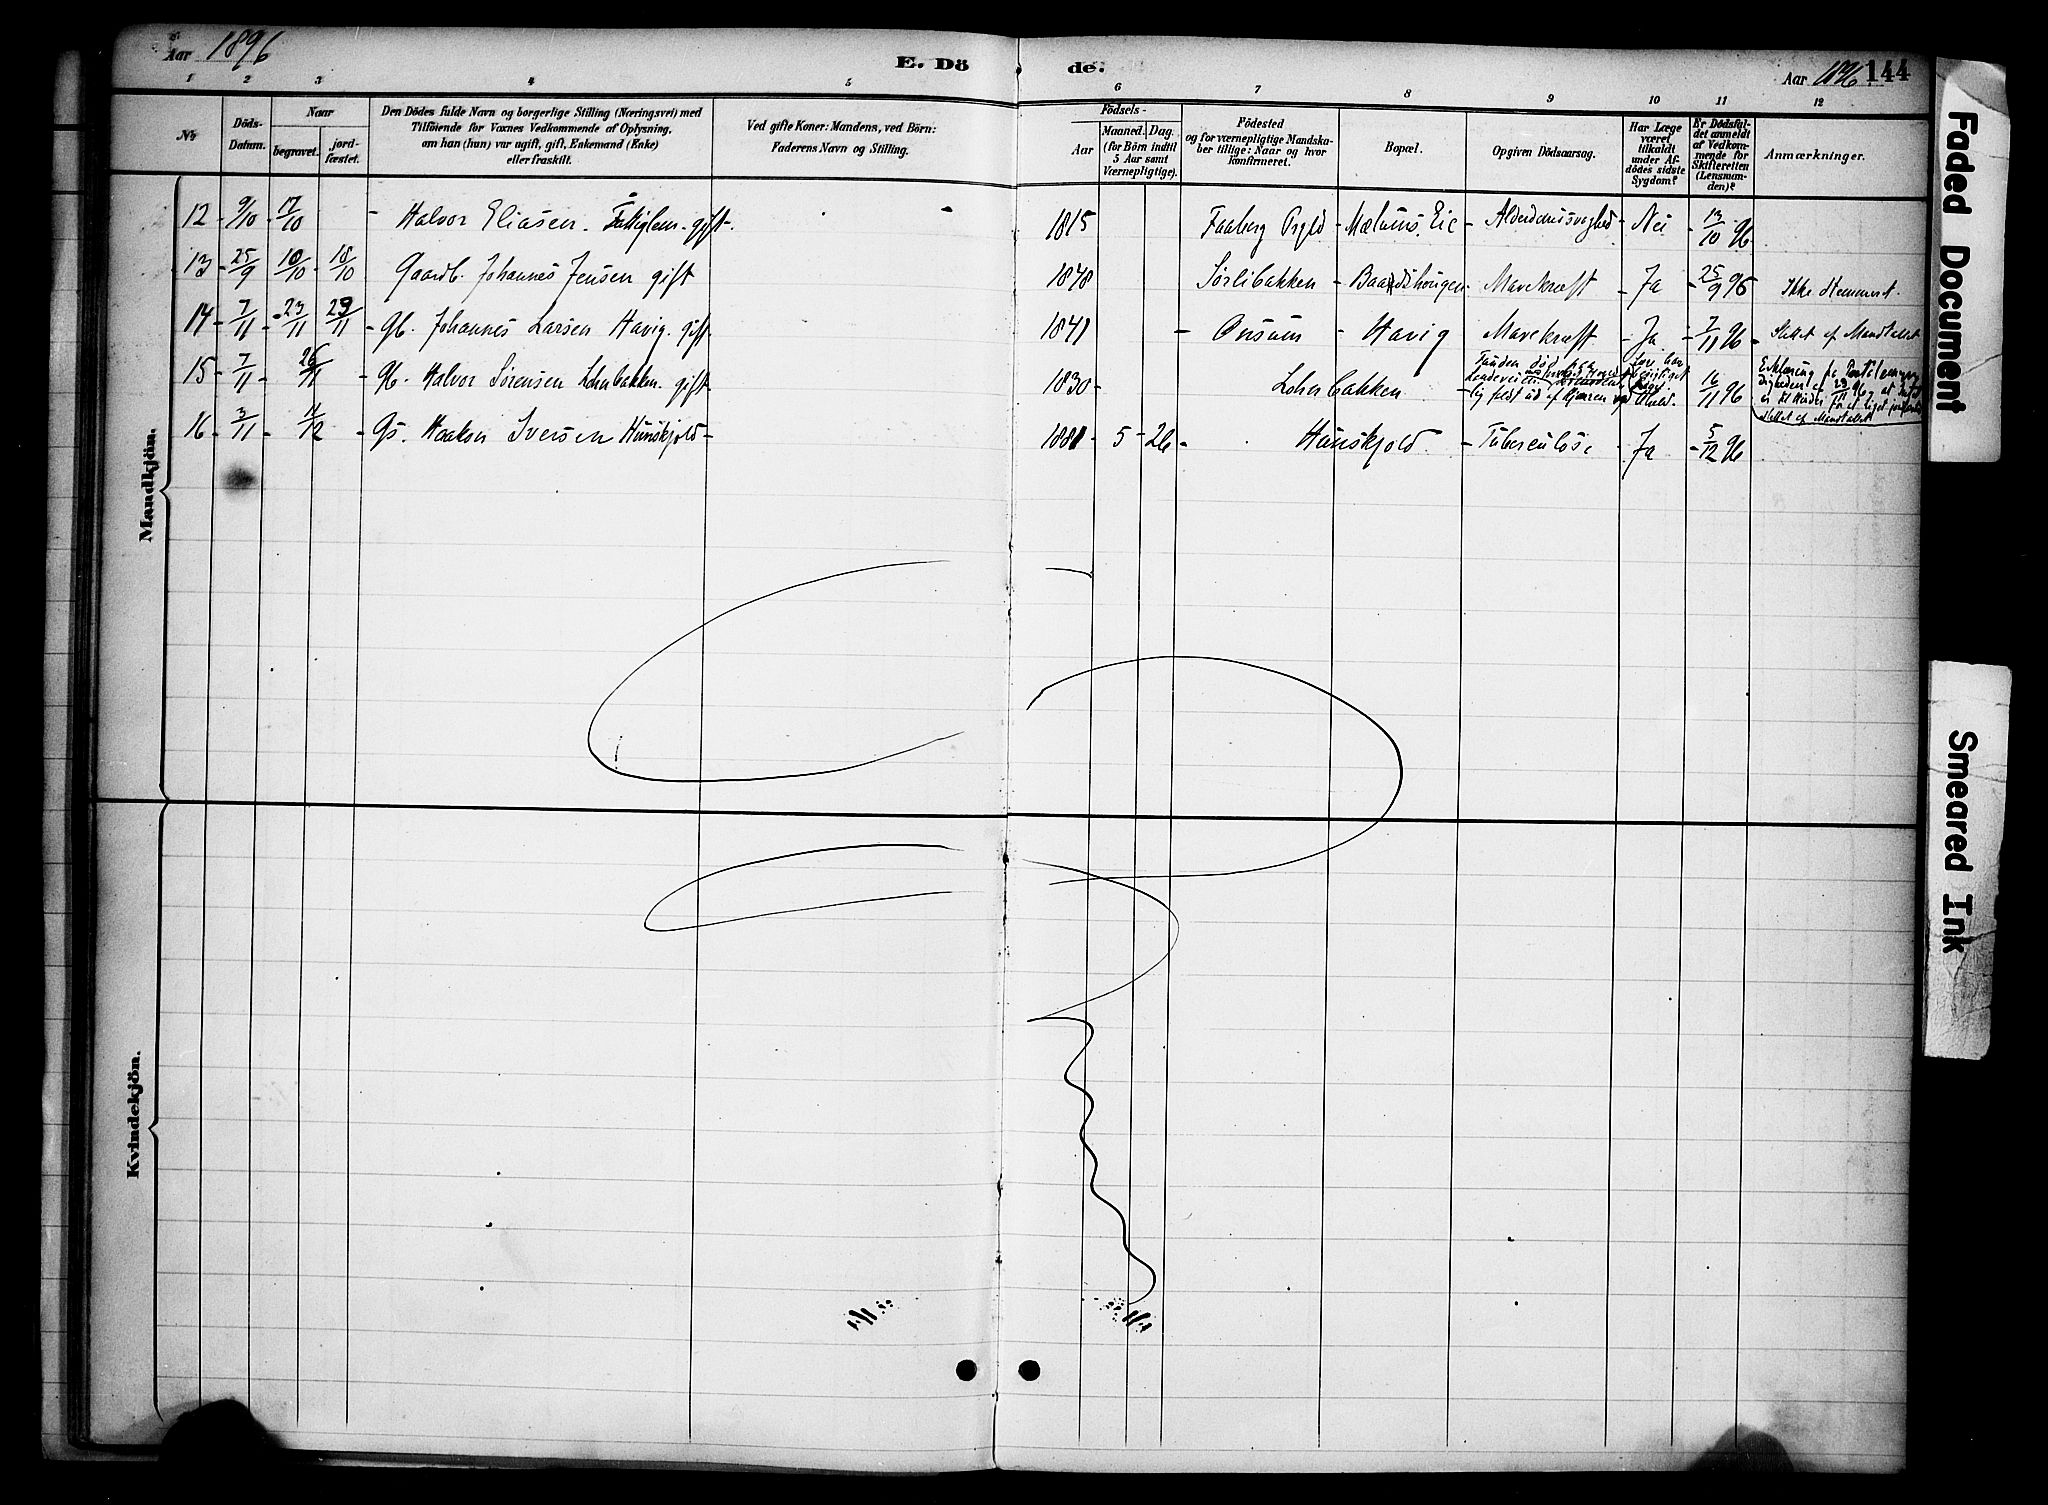 Aar 1896
E. Dö
de.
Aar 1896 144
1 2 3 4 5 6 7 8 9 10 11 12
No
Döds-Datum.
Naar
begravet.
jord-fæstet.
Den Dödes fulde Navn og borgerlige Stilling (Næringsvei) med
Tilföiende for Voxnes Vedkommende af Oplysning,
om han (hun) var ugift, gift, Enkemand (Enke)
eller fraskilt.
Ved gifte Koner: Mandens, ved Börn:
Faderens Navn og Stilling.
Födsels-
Aar
Maaned. Dag.
(for Börn indtil
5 Aar samt
Værnepligtige).
Födested
og for værnepligtige Mandska-
ber tillige: Naar og hvor
konfirmeret.
Bopæl.
Opgiven Dödsaarsag.
Har Læge
været
tilkaldt
under Af-
dödes sidste
Sygdom?
Er Dödsfal-
det anmeldt
af Vedkom-
mende for
Skifteretten
(Lensman-
den)?
Anmærkninger.
Mandkjön.
12 - 9/10 - 17/10 - Halvor Eliasen. gift. 1815 Faaberg Prgld - Mælums. Eie - Alderdomssvaghed - Nei - 13/10 96
13 - 25/9 10/10 - 18/10 Gaardb. Johannes Jensen gift 1848 Sørlibakken - Baardshougen - Marekræft - Ja - 25/9 96 Ikke stemmeret.
14 - 7/11 - 23/11 23/11 - Gb. Johannes Larsen Havig. gift. 1841 - Onsum - Havig Mavekræft - Ja - 7/11 96 - Slettet af Mandtallet
15 - 7/11 - 26/11 - Gb. Halvor Sørensen Lohnbakken. gift - 1830 - Lohnbakken Funden død
16 16/11 96 Erklæring fra
Slettet af Mandtallet
16 - 3/11 - 11/12 - Gs. Haakon Iversen Hunskjold - 1881 - 5 - 26 - Hunskjold. - Tuberculose - Ja - 5/12 96
Kvindekjön.
Faded Document
Smeared Ink